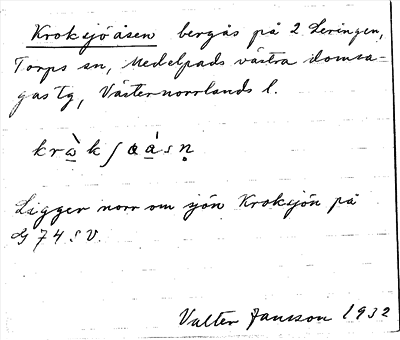 Kroksjöåsen bergås på 2 Leringen,
Torps sn, Medelpads västra domsa-
gas tg, Västernorrlands l.
krὼ̲kʃa̲á̲sn̥
Ligger norr om sjön Kroksjön på
G 74 S V.
Valter Jansson 1932